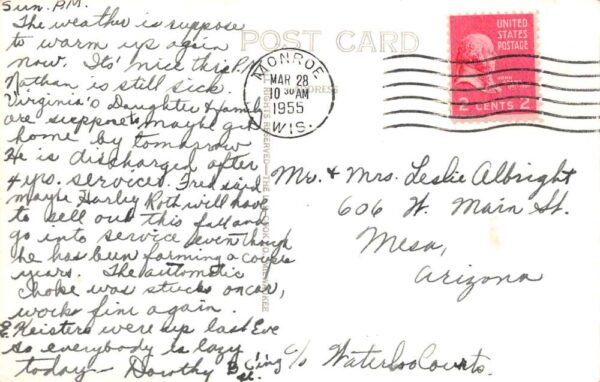 Sun. P.M.
The weather is suppose
to warm up again
now. Its' nice this P.M.
Nathan is still sick.
Virginia'o Daughter & family
are suppose to maybe get
home by tomorrow
He is discharged after
4 yrs. service. Fred said
maybe Harley Roth will have
to sell out this fall and
go into service even though
he has been farming a couple
years. The automatic
choke was stuck on car,
works fine again.
E. Keisters were up last Eve
so everybody is lazy
today - Dorothy B
POST CARD
ADDRESS
MONROE
MAR 28
10 30 AM
1955
WIS.
UNITED
STATES
POSTAGE
2 CENTS 2
Mr. & Mrs. Leslie Albright
606 W. Main St.
Mesa,
Arizona
c/o Waterloo Courts.